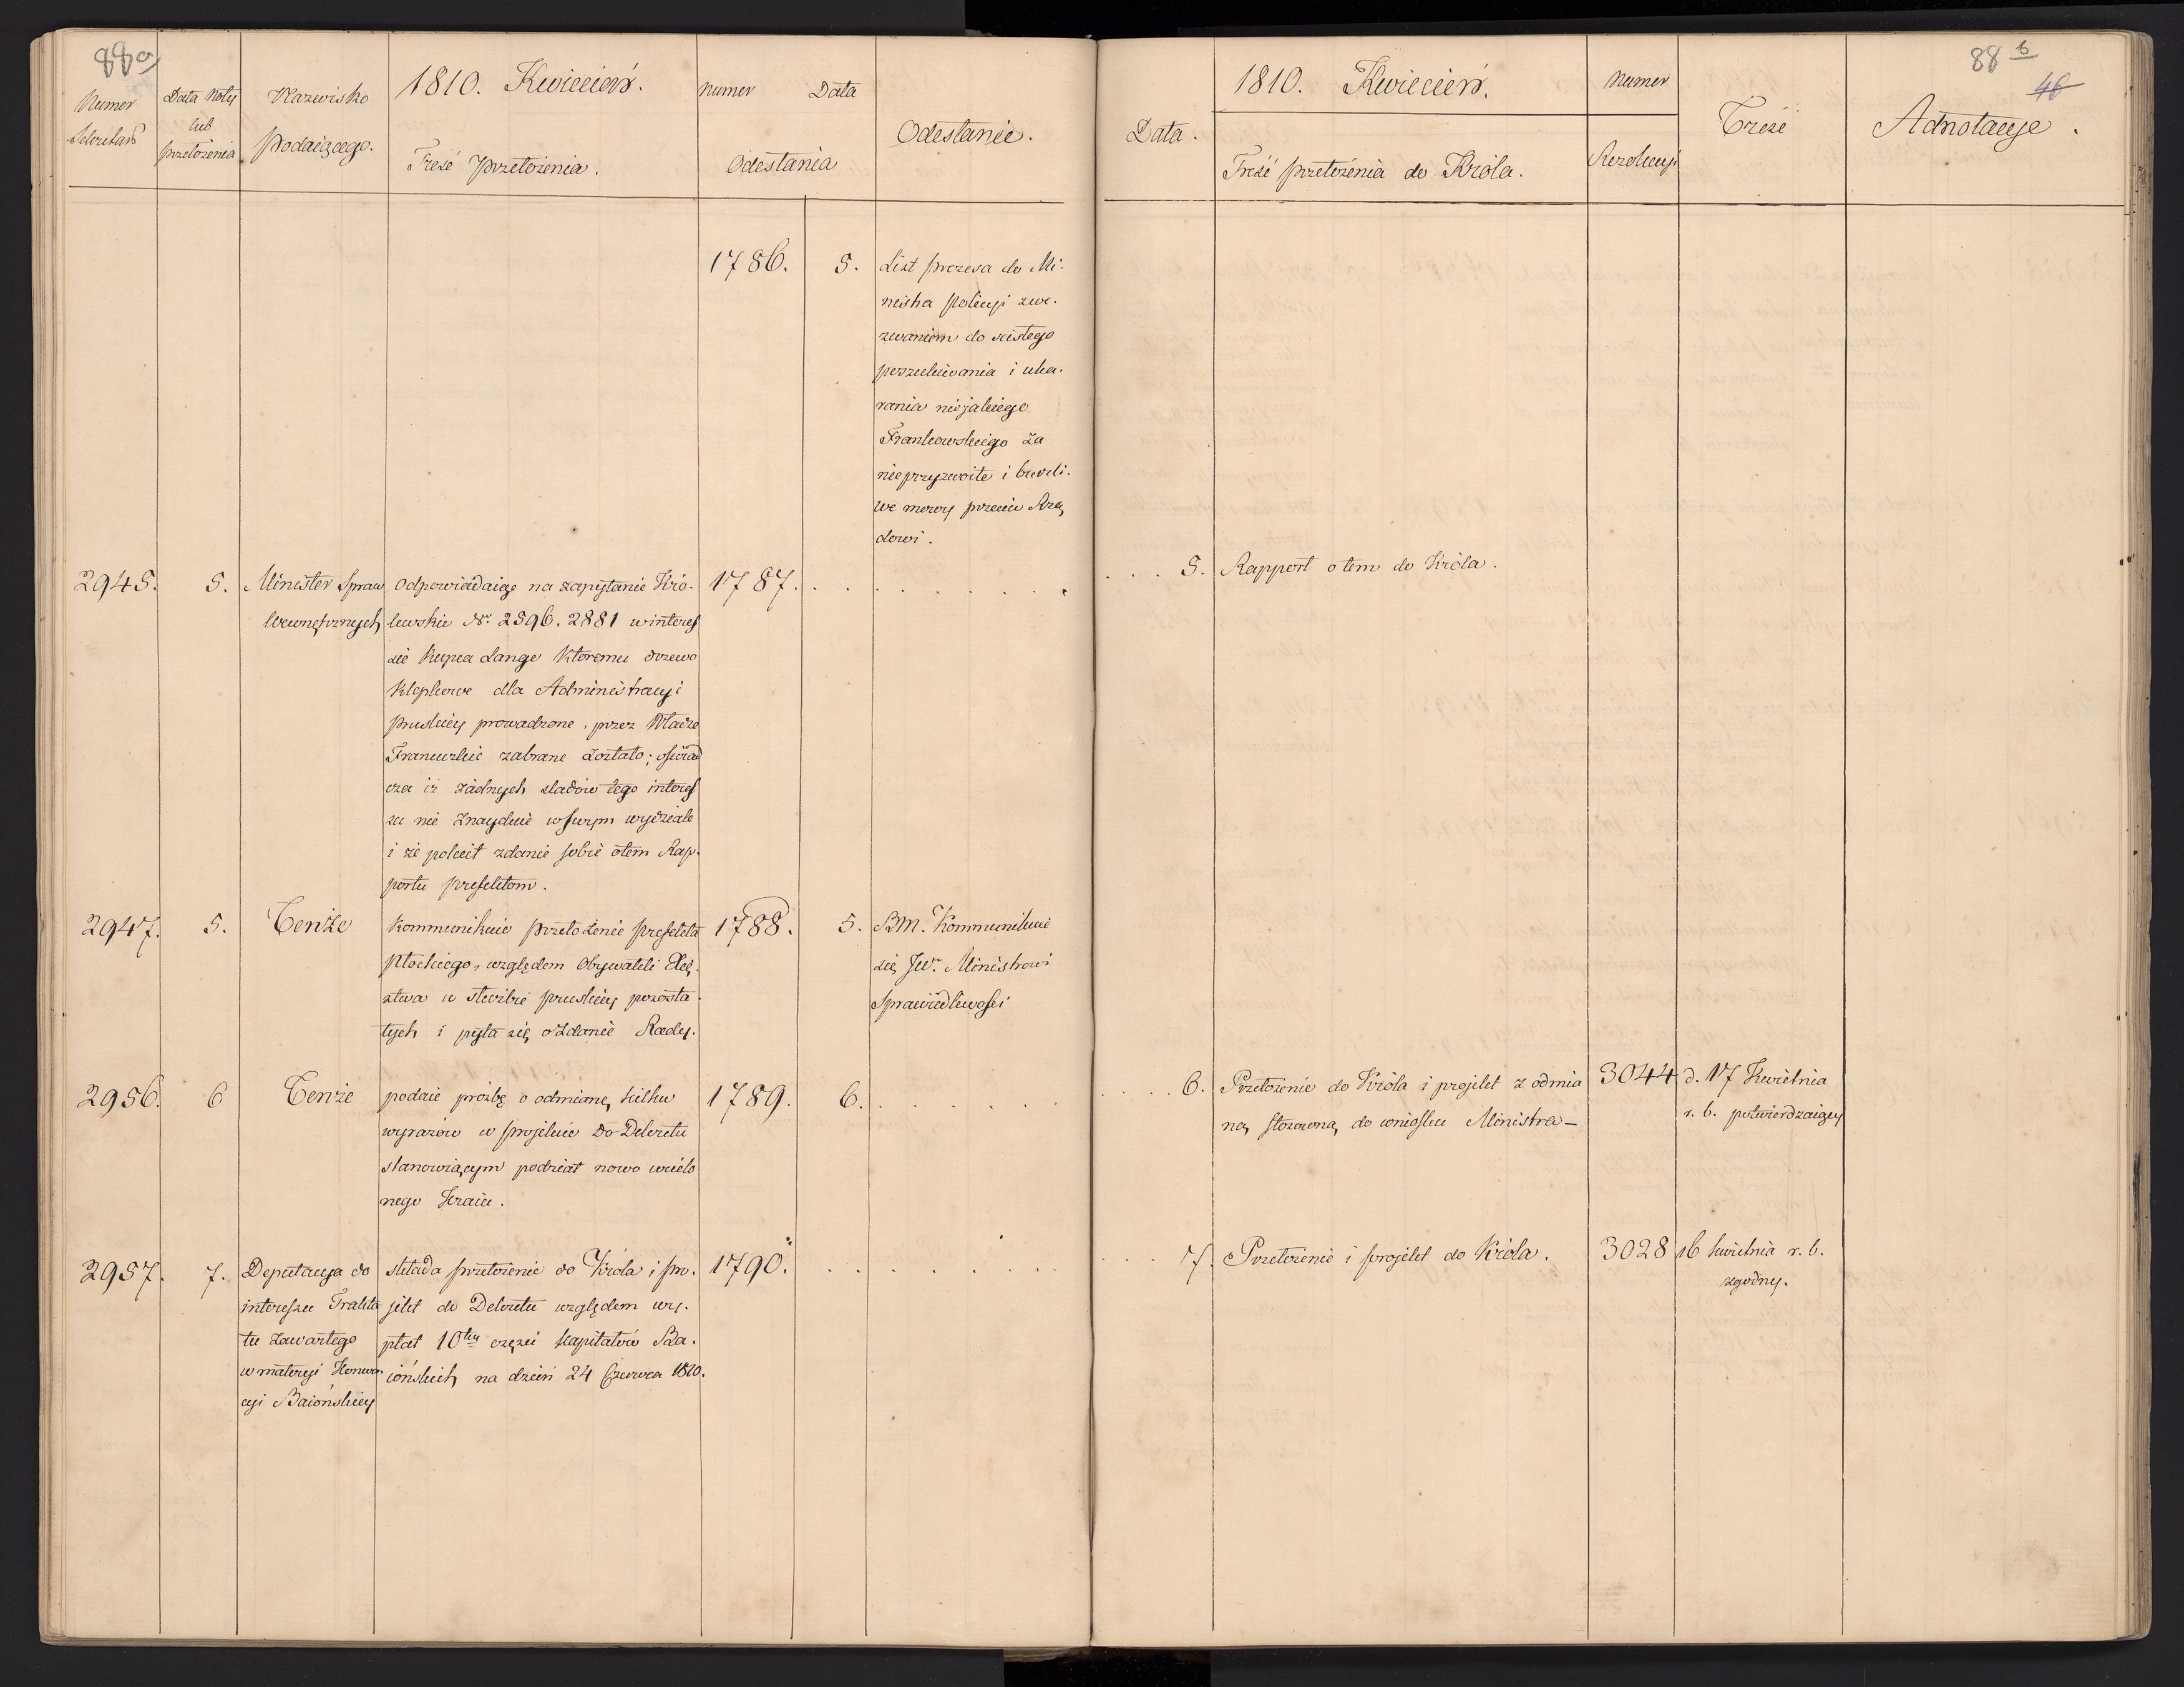 88a
Numer
Sekretar.
Data Noty
lub
przełożenia
Nazwisko
Podaiącego.
1810. Kwiecień.
Treść Przełożenia.
Numer Data
Odesłania
Odesłanie.
1786. 5. List prezesa do Mi-
nistra Policyi zwe-
zwaniem do scisłego
poszukiwania i uka-
rania niejakiego
Frankowskiego za
nieprzyzwoite i burzli-
we mowy przeciw Rzą
dowi.
2945. 5. Minister Spraw
Wewnętrznych
Odpowiadaiąc na zapytanie Kró-
lewskie Nr. 2596. 2881 w interes
sie Kupca Lange któremu drzewo
klepkowe dla Administracyi
pruskiey prowadzone, przez Władze
Francuzkie zabrane zostało; oświad
cza iż żadnych sladów tego interes
su nie znayduie w swym wydziale
i że polecił zdanie sobie otem Rap-
portu prefektom.
1787.
2947. 5. Tenże
Kommunikuie przełożenie prefekta
Płockiego, względem Obywateli Xię-
stwa w służbie pruskiey pozosta-
łych i pyta się o zdanie Rady.
1788. 5. BM. Kommunikuie
się JW. Ministrowi
Sprawiedliwości
2956. 6 Tenże
podaie prożbę o odmianę kilku
wyrazów w projekcie do Dekretu
stanowiącym podział nowo wcielo
nego Kraiu.
1789. 6.
2957. 7. Deputacya do
interessu Trakta
tu zawartego
w materyi Konwen
cyi Baiońskiey
składa przełożenie do Króla i pro-
jekt do Dekretu względem wy-
płat 10tey części kapitałów Ba-
iońskich na dzień 24 Czerwca 1810.
1790.
88 b
46
Data.
1810. Kwiecień.
Treść przełożenia do Króla.
Numer
Rezolucyi
Treść
Adnotacye.
5. Rapport o tem do Króla.
6. Przełożenie do Króla i projekt z odmia
ną stosowną do wniosku Ministra –
3044 d. 17 Kwietnia
r. b. potwierdzaiący
7. Przełożenie i projekt do Króla.
3028 16 kwietnia r. b.
zgodny.